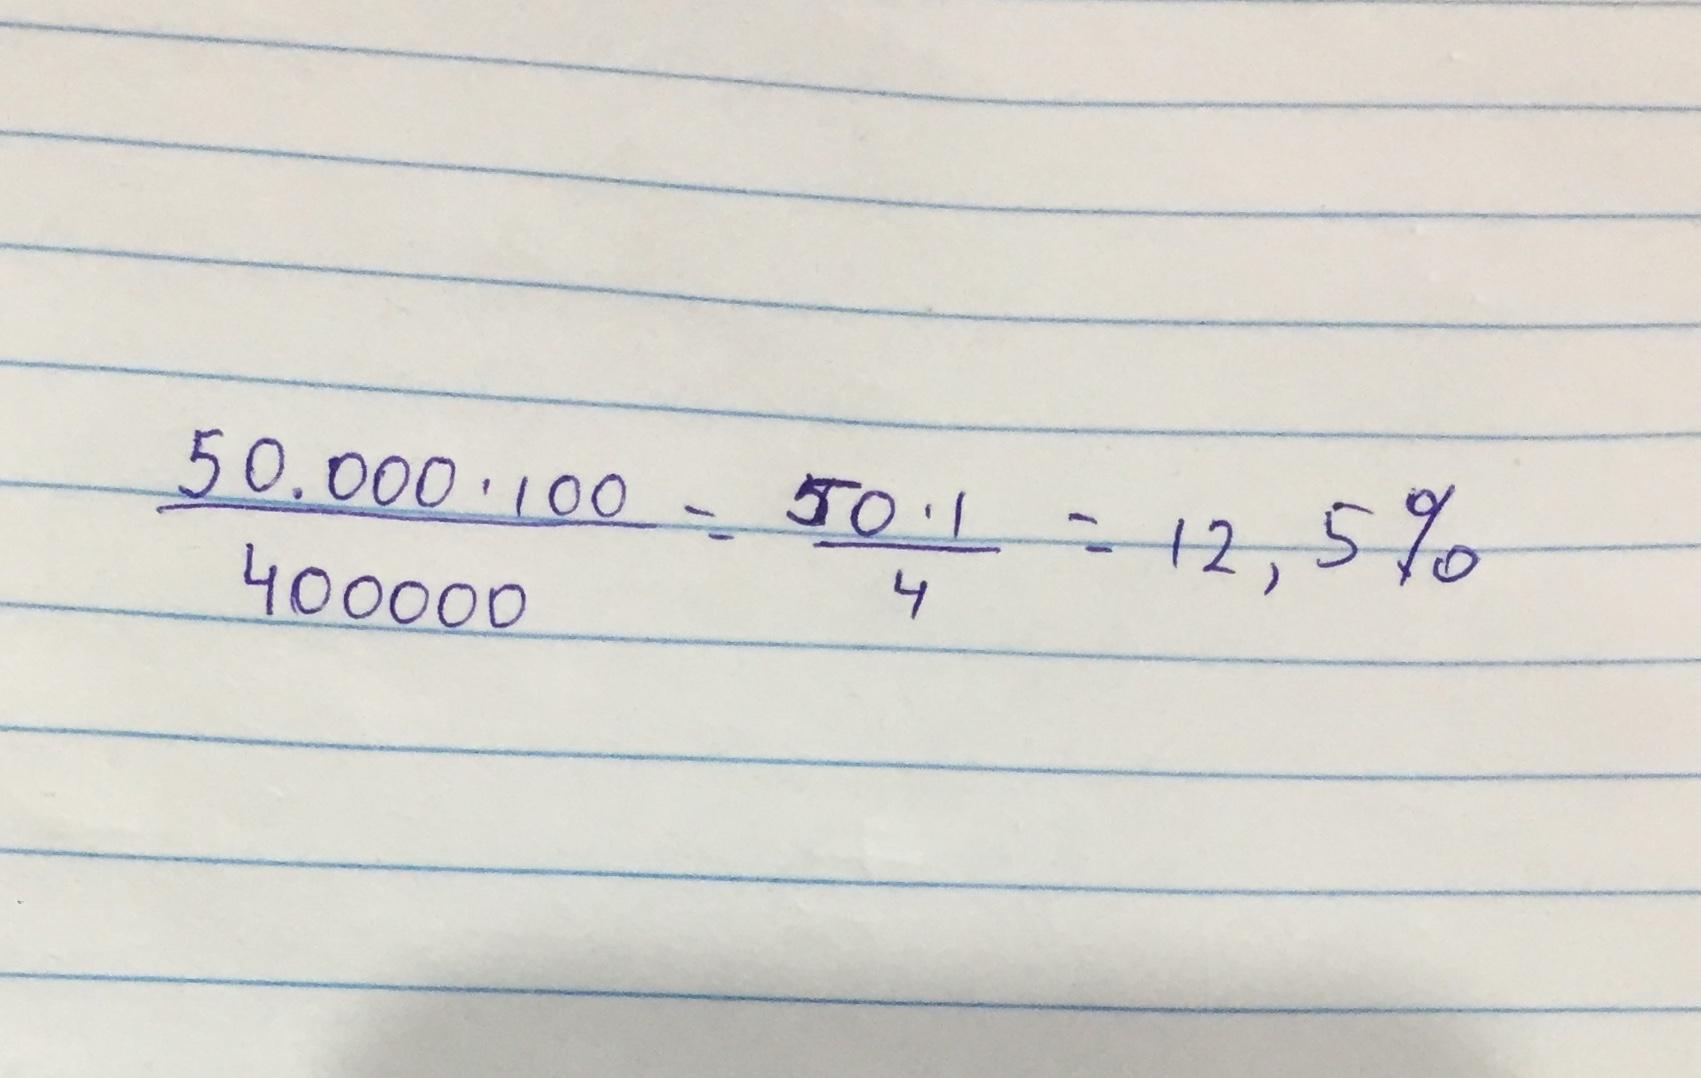 50.000·100 / 400000 = 50·1 / 4 = 12,5%